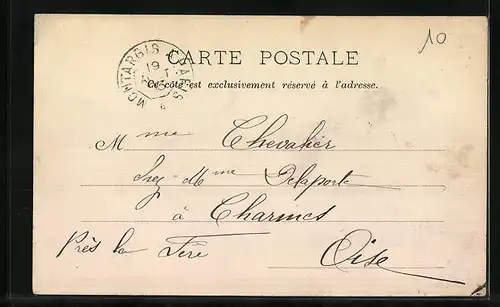 10
CARTE POSTALE
MONTARGIS A PARIS
19
Ce côté est exclusivement réservé à l'adresse.
Mme Chevalier
Mme Delaporte
à Charmes
Près la Fère
Oise